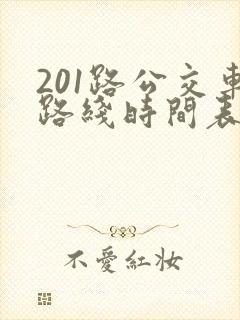 201路公交車
路綫時間表
不愛紅妝